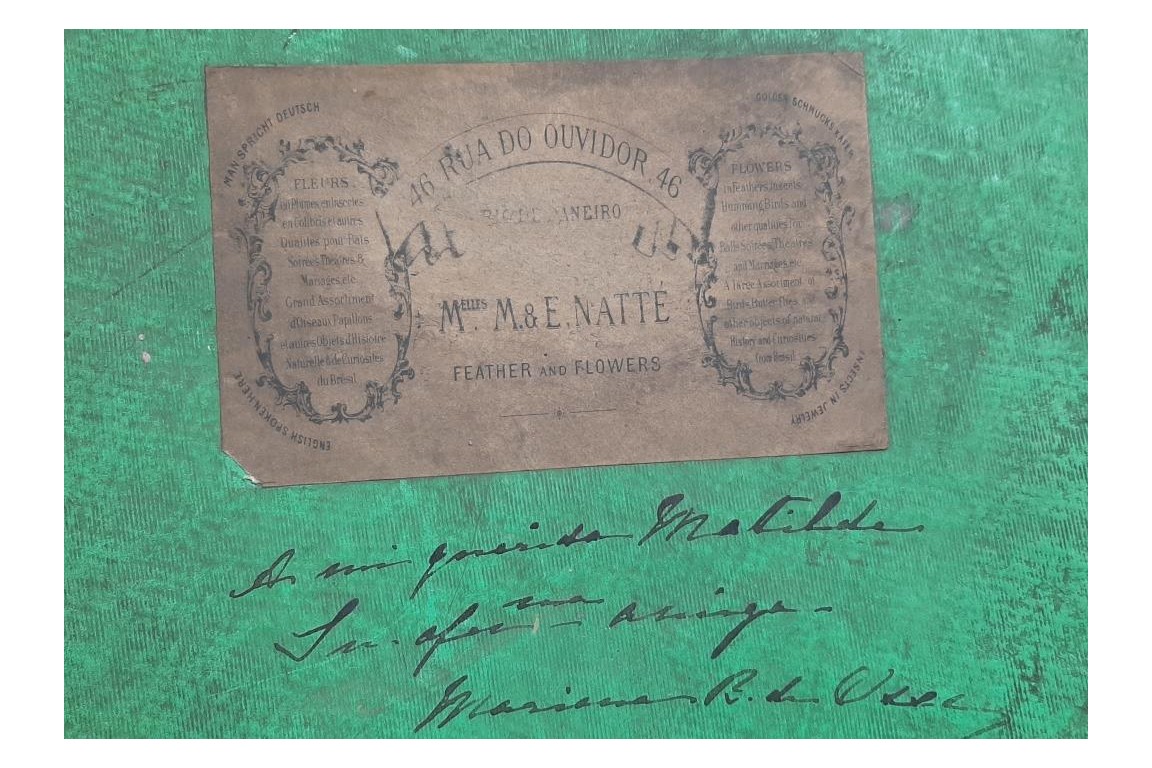 MAN SPRICHT DEUTSCH
FLEURS
en Plumes, en Insectes
en Colibris et autres
Qualités pour Bals
Soirées Théâtres &
Mariages, etc
Grand Assortiment
d'Oiseaux Papillons
et autres Objets d'Histoire
Naturelle & de Curiosités
du Brésil
ENGLISH SPOKEN HERE
46 RUA DO OUVIDOR 46
RIO DE JANEIRO
Melles M. & E. NATTÉ
FEATHER AND FLOWERS
FLOWERS
in Feathers, Insects
Humming Birds and
other qualities for
Balls Soirées, Theatres
and Marriages, etc.
A large Assortment of
Birds, Butterflies, and
other objects of natural
History and Curiosities
from Bresil
INSECTS IN JEWELRY
A mi querida Matilde
Su afma amiga
Mariana R. de